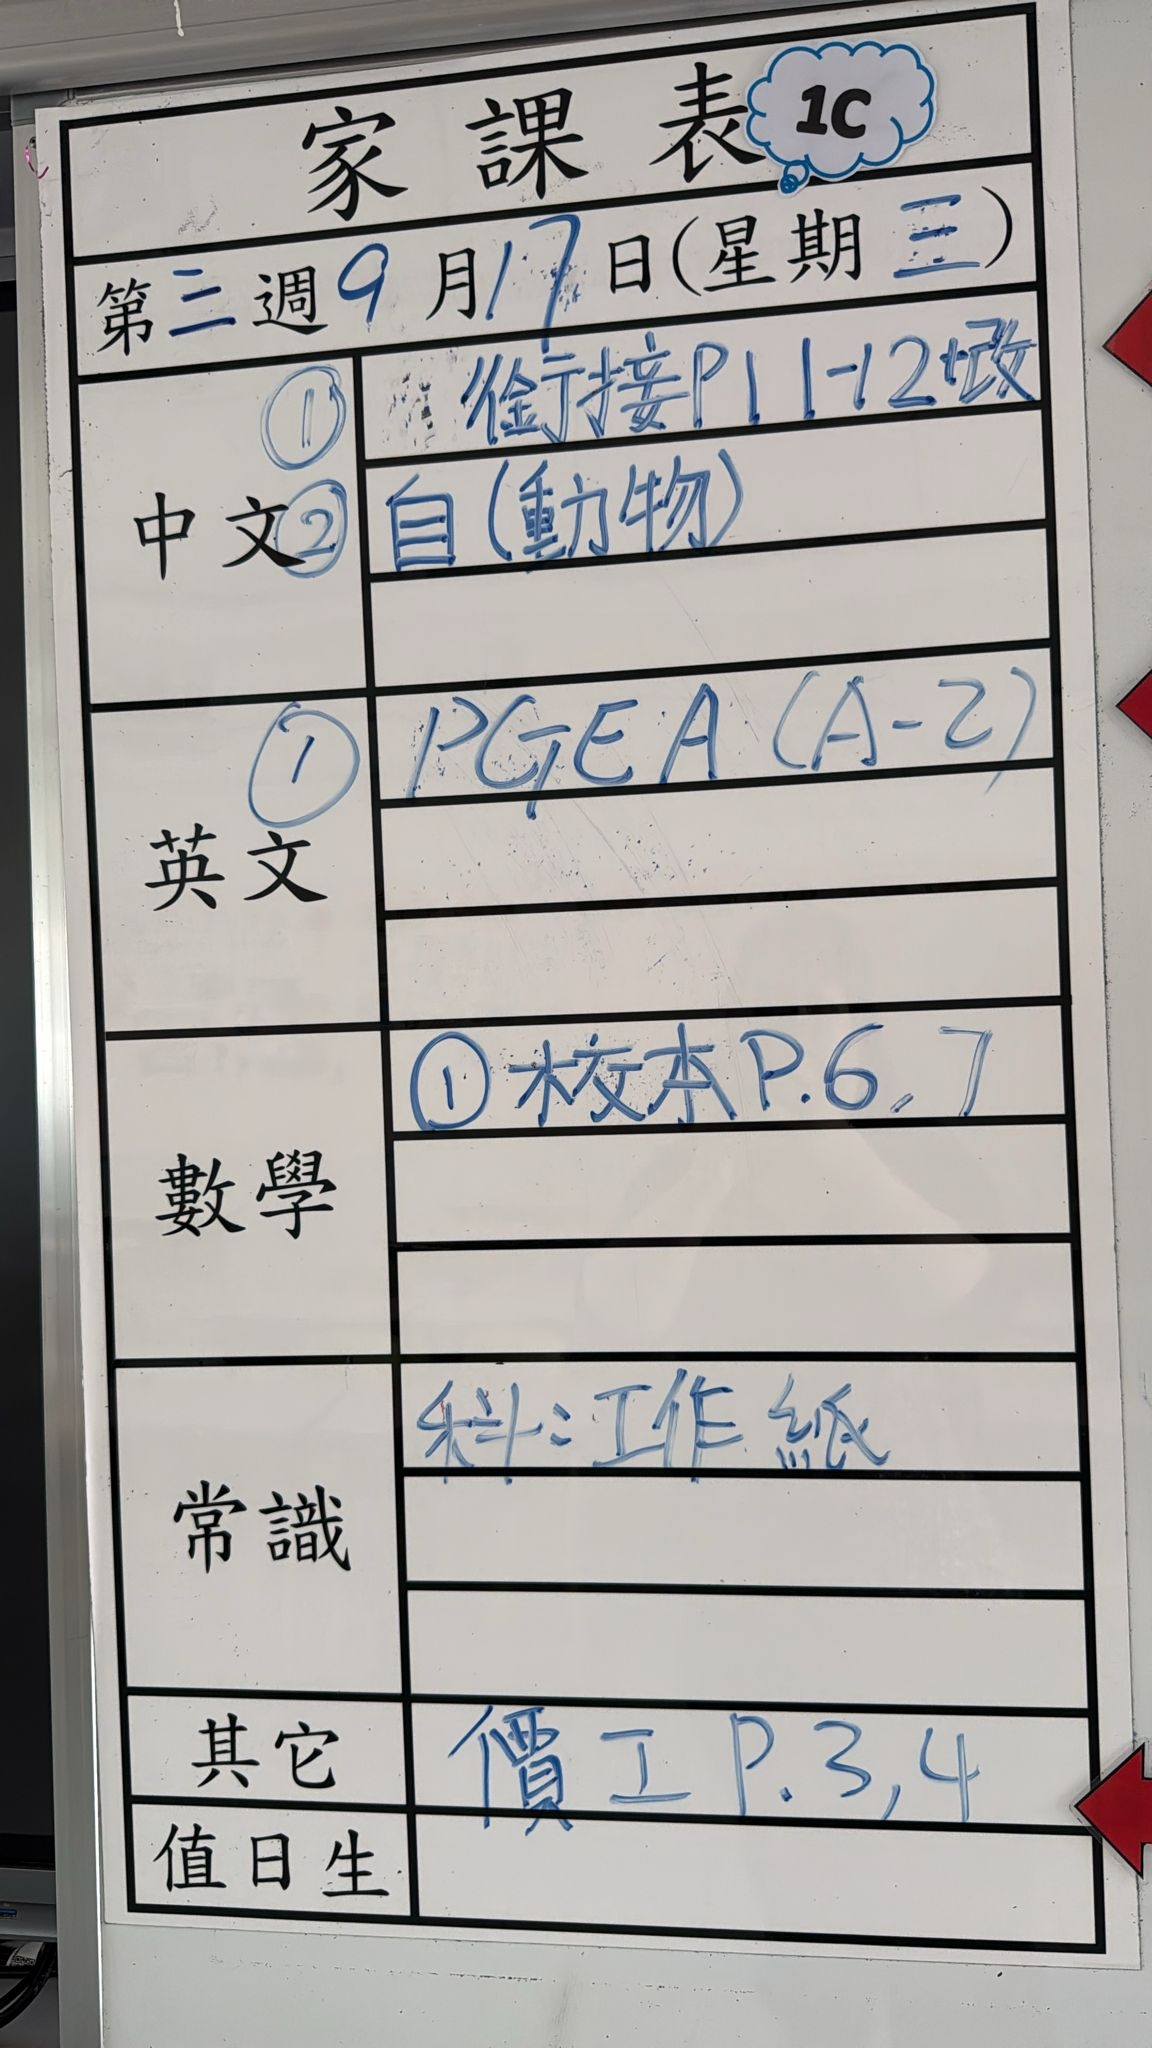 家課表 1C
第三週 9月17日(星期三)
中文
① 銜接P11-12+改
② 自(動物)
英文
① PGEA (A-2)
數學
① 校本P.6, 7
常識
科:工作紙
其它
價工 P.3,4
值日生